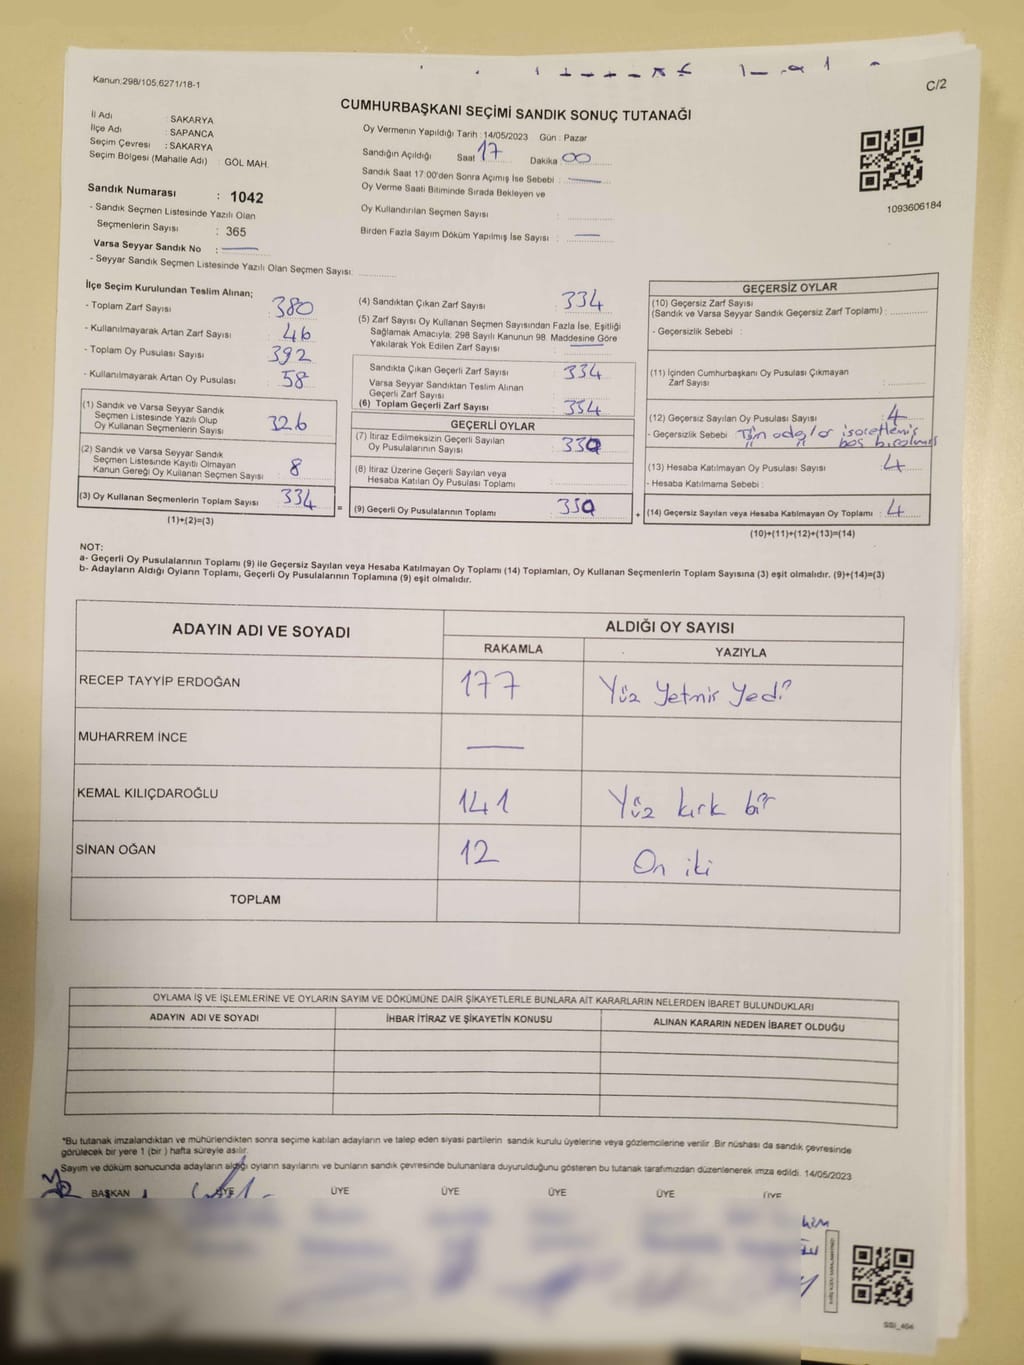 Kanun:298/105;6271/18-1
C/2
CUMHURBAŞKANI SEÇİMİ SANDIK SONUÇ TUTANAĞI
İl Adı : SAKARYA
İlçe Adı : SAPANCA
Seçim Çevresi : SAKARYA
Seçim Bölgesi (Mahalle Adı) : GÖL MAH.
Sandık Numarası : 1042
- Sandık Seçmen Listesinde Yazılı Olan
Seçmenlerin Sayısı : 365
Varsa Seyyar Sandık No :
- Seyyar Sandık Seçmen Listesinde Yazılı Olan Seçmen Sayısı:
Oy Vermenin Yapıldığı Tarih : 14/05/2023 Gün : Pazar
Sandığın Açıldığı Saat 17 Dakika 00
Sandık Saat 17:00'den Sonra Açımış İse Sebebi :
Oy Verme Saati Bitiminde Sırada Bekleyen ve
Oy Kullandırılan Seçmen Sayısı :
Birden Fazla Sayım Döküm Yapılmış İse Sayısı :
1093606184
İlçe Seçim Kurulundan Teslim Alınan;
- Toplam Zarf Sayısı : 380
- Kullanılmayarak Artan Zarf Sayısı : 46
- Toplam Oy Pusulası Sayısı : 392
- Kullanılmayarak Artan Oy Pusulası : 58
(1) Sandık ve Varsa Seyyar Sandık
Seçmen Listesinde Yazılı Olup
Oy Kullanan Seçmenlerin Sayısı : 326
(2) Sandık ve Varsa Seyyar Sandık
Seçmen Listesinde Kayıtlı Olmayan
Kanun Gereği Oy Kullanan Seçmen Sayısı : 8
(3) Oy Kullanan Seçmenlerin Toplam Sayısı : 334
(1)+(2)=(3)
(4) Sandıktan Çıkan Zarf Sayısı : 334
(5) Zarf Sayısı Oy Kullanan Seçmen Sayısından Fazla İse, Eşitliği
Sağlamak Amacıyla; 298 Sayılı Kanunun 98. Maddesine Göre
Yakılarak Yok Edilen Zarf Sayısı :
Sandıkta Çıkan Geçerli Zarf Sayısı : 334
Varsa Seyyar Sandıktan Teslim Alınan
Geçerli Zarf Sayısı :
(6) Toplam Geçerli Zarf Sayısı : 334
GEÇERLİ OYLAR
(7) İtiraz Edilmeksizin Geçerli Sayılan
Oy Pusulalarının Sayısı : 330
(8) İtiraz Üzerine Geçerli Sayılan veya
Hesaba Katılan Oy Pusulası Toplamı :
= (9) Geçerli Oy Pusulalarının Toplamı : 330
GEÇERSİZ OYLAR
(10) Geçersiz Zarf Sayısı
(Sandık ve Varsa Seyyar Sandık Geçersiz Zarf Toplamı) :
- Geçersizlik Sebebi :
(11) İçinden Cumhurbaşkanı Oy Pusulası Çıkmayan
Zarf Sayısı :
(12) Geçersiz Sayılan Oy Pusulası Sayısı : 4
- Geçersizlik Sebebi : işaretlenmiş
boş
(13) Hesaba Katılmayan Oy Pusulası Sayısı : 4
- Hesaba Katılmama Sebebi :
+ (14) Geçersiz Sayılan veya Hesaba Katılmayan Oy Toplamı : 4
(10)+(11)+(12)+(13)=(14)
NOT:
a- Geçerli Oy Pusulalarının Toplamı (9) ile Geçersiz Sayılan veya Hesaba Katılmayan Oy Toplamı (14) Toplamları, Oy Kullanan Seçmenlerin Toplam Sayısına (3) eşit olmalıdır. (9)+(14)=(3)
b- Adayların Aldığı Oyların Toplamı, Geçerli Oy Pusulalarının Toplamına (9) eşit olmalıdır.
ADAYIN ADI VE SOYADI
ALDIĞI OY SAYISI
RAKAMLA YAZIYLA
RECEP TAYYİP ERDOĞAN 177 Yüz Yetmiş Yedi
MUHARREM İNCE
KEMAL KILIÇDAROĞLU 141 Yüz kırk bir
SİNAN OĞAN 12 On iki
TOPLAM
OYLAMA İŞ VE İŞLEMLERİNE VE OYLARIN SAYIM VE DÖKÜMÜNE DAİR ŞİKAYETLERLE BUNLARA AİT KARARLARIN NELERDEN İBARET BULUNDUKLARI
ADAYIN ADI VE SOYADI İHBAR İTİRAZ VE ŞİKAYETİN KONUSU ALINAN KARARIN NEDEN İBARET OLDUĞU
*Bu tutanak imzalandıktan ve mühürlendikten sonra seçime katılan adayların ve talep eden siyasi partilerin sandık kurulu üyelerine veya gözlemcilerine verilir. Bir nüshası da sandık çevresinde
görülecek bir yere 1 (bir) hafta süreyle asılır.
Sayım ve döküm sonucunda adayların aldığı oyların sayılarını ve bunların sandık çevresinde bulunanlara duyurulduğunu gösteren bu tutanak tarafımızdan düzenlenerek imza edildi. 14/05/2023
BAŞKAN ÜYE ÜYE ÜYE ÜYE ÜYE ÜYE